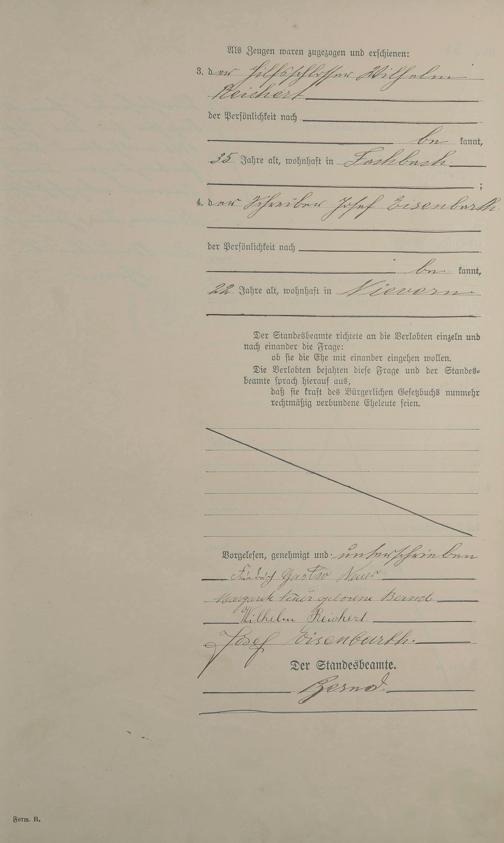 Als Zeugen waren zugezogen und erschienen:
3. der Hilfsschlosser Wilhelm
Reichert
der Persönlichkeit nach
be kannt,
35 Jahre alt, wohnhaft in Fachbach
;
4. der Schreiber Josef Eisenbarth
der Persönlichkeit nach
be kannt,
22 Jahre alt, wohnhaft in Nievern
Der Standesbeamte richtete an die Verlobten einzeln und
nach einander die Frage:
ob sie die Ehe mit einander eingehen wollen.
Die Verlobten bejahten diese Frage und der Standes-
beamte sprach hierauf aus,
daß sie kraft des Bürgerlichen Gesetzbuchs nunmehr
rechtmäßig verbundene Eheleute seien.
Vorgelesen, genehmigt und unterschrieben
Gustav
geborene Bernd
Wilhelm Reichert
Josef Eisenbarth.
Der Standesbeamte.
Bernd.
Form. B.